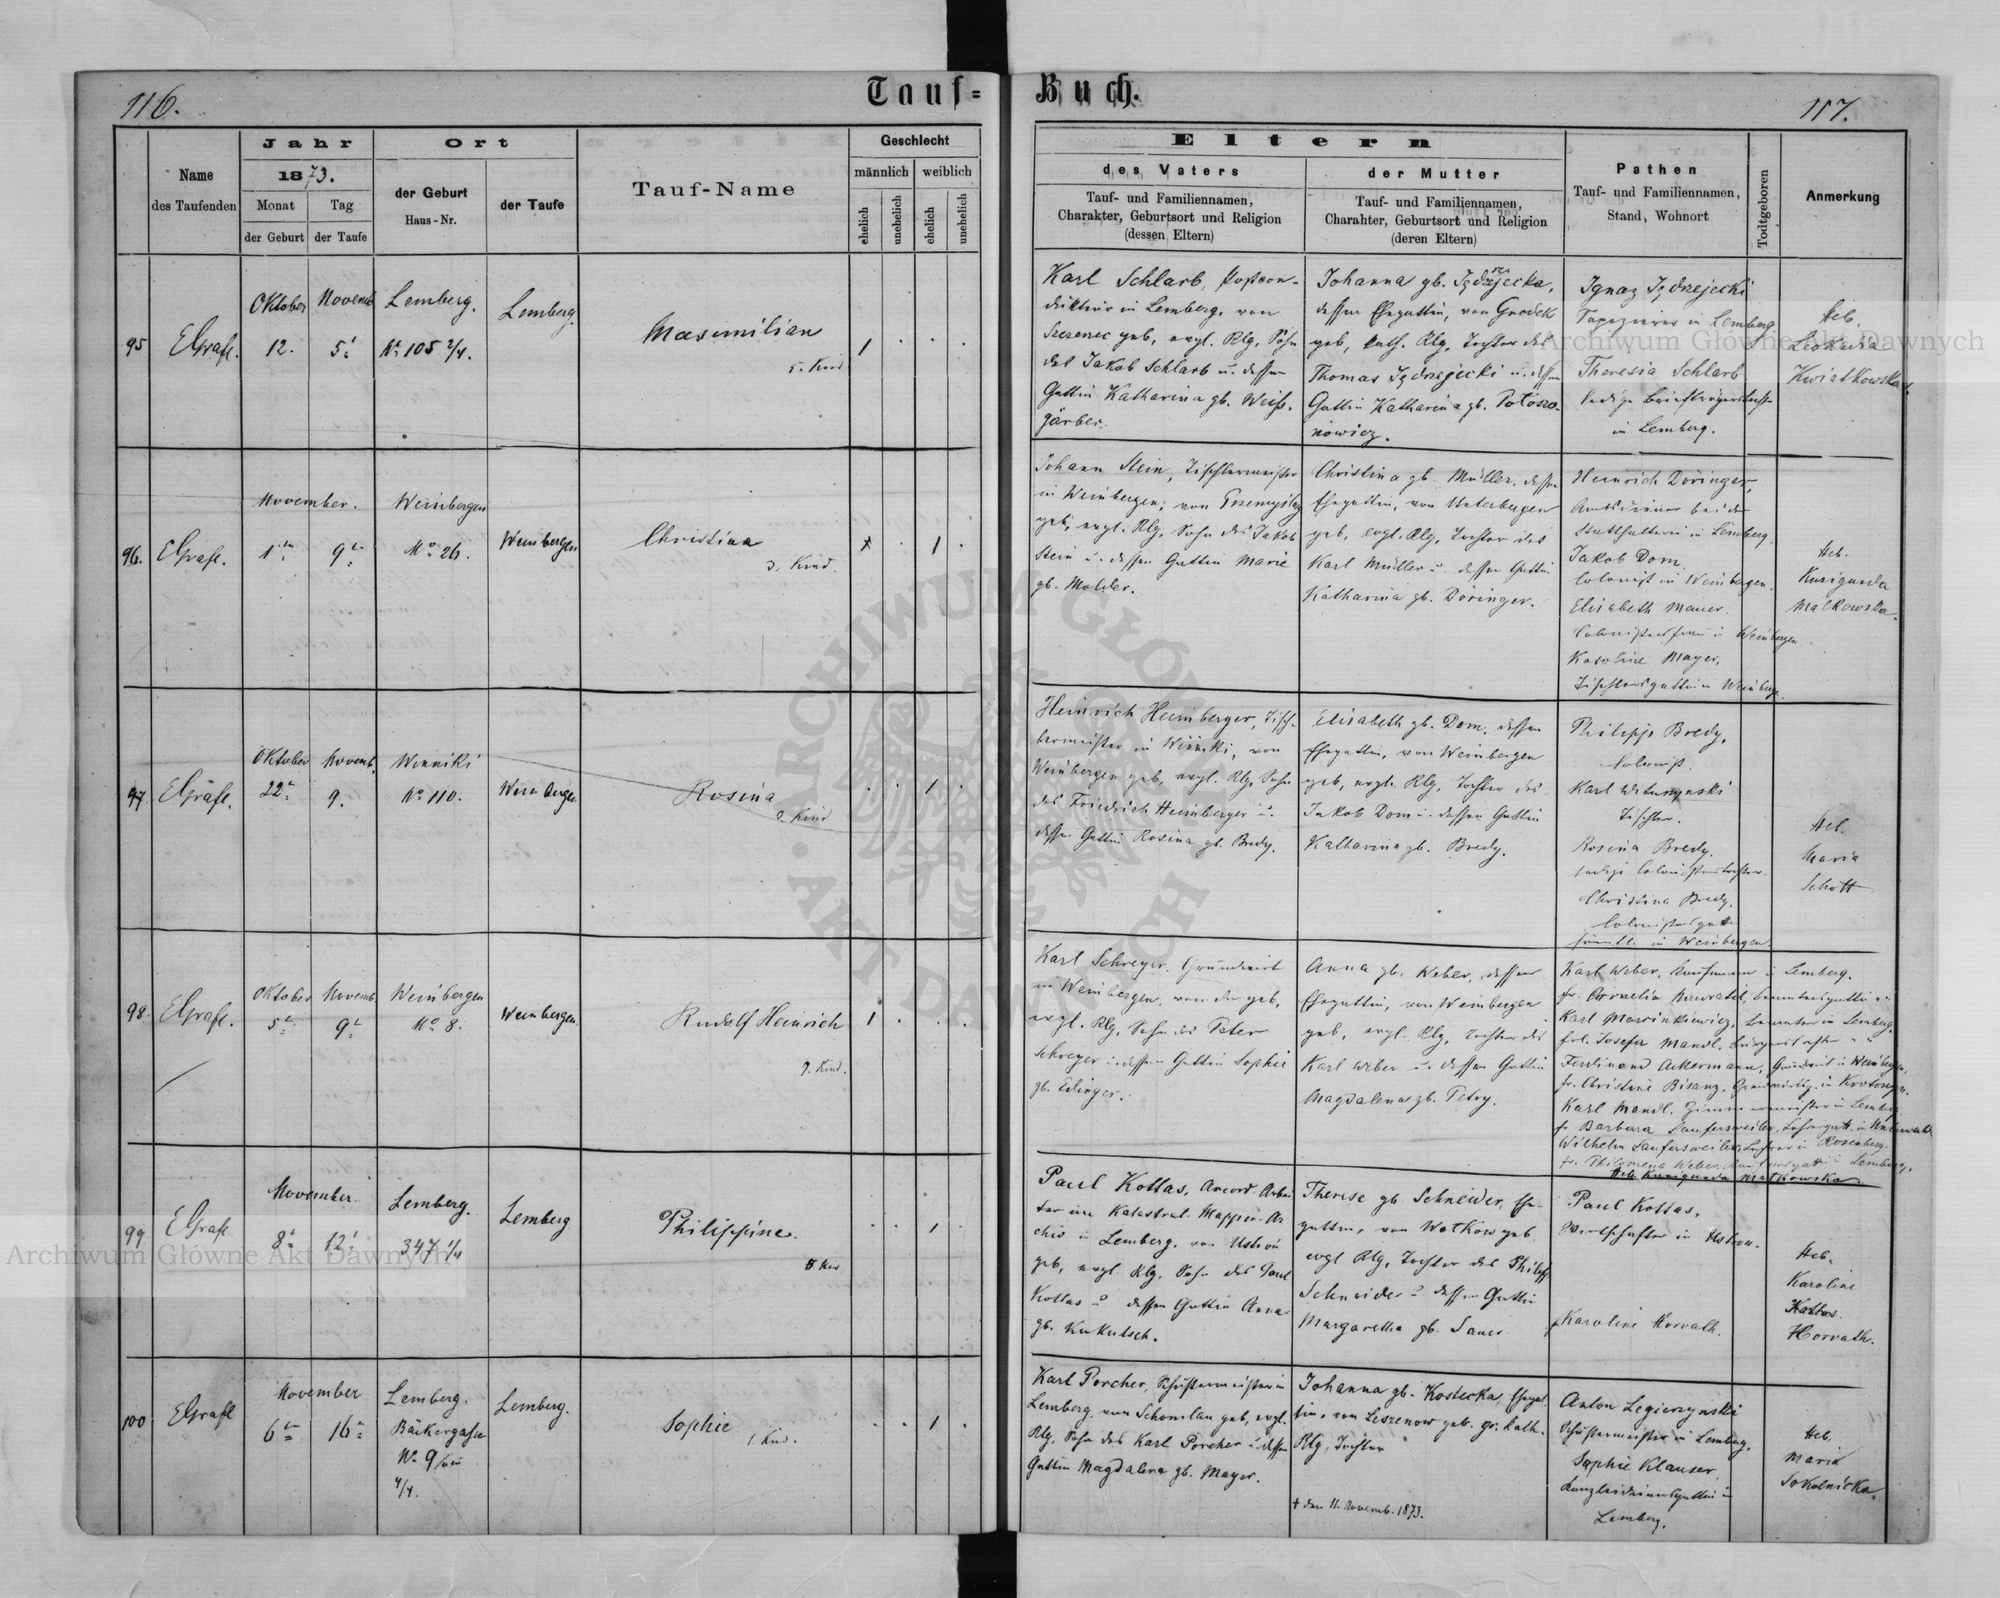 116.
Tauf=
Buch.
117.
Name
des Taufenden
Jahr
1873.
Monat
der Geburt
Tag
der Taufe
Ort
der Geburt
Haus-Nr.
der Taufe
Tauf-Name
Geschlecht
männlich
weiblich
ehelich
unehelich
ehelich
unehelich
Eltern
des Vaters
Tauf- und Familiennamen,
Charakter, Geburtsort und Religion
(dessen Eltern)
der Mutter
Tauf- und Familiennamen,
Charahter, Geburtsort und Religion
(deren Eltern)
Pathen
Tauf- und Familiennamen,
Stand, Wohnort
Todtgeboren
Anmerkung
95
EGrafl.
Oktober
12.
Novemb
5.
Lemberg.
No 105 2/4.
Lemberg.
Maximilian
5. Kind
1
Karl Schlarb,
in Lemberg, von
Szczerzec geb, evgl. Rlg, Sohn
des Jakob Schlarb u. dessen
Gattin Katharina gb. Weiß-
gärber.
Johanna gb. Jędrzejecka,
dessen Ehegattin, von Grodek
geb, kath. Rlg, Tochter des
Thomas Jędrzejecki u. dessen
Gattin Katharina gb.
Ignaz Jędrzejecki
Tapezierer in Lemberg.
Theresia Schlarb
ledige
in Lemberg.
Heb.
Leokadia
Kwiatkowska.
96.
EGrafl.
November.
1
9
Weinbergen
No 26.
Weinbergen
Christina
3. Kind.
1
Johann Stein, Tischlermeister
in Weinbergen; von
geb, evgl. Rlg, Sohn des Jakob
Stein u. dessen Gattin Marie
gb. Molder.
Christina gb. Müller, dessen
Ehegattin, von Unterbergen
geb, evgl. Rlg, Tochter des
Karl Müller u. dessen Gattin
Katharina gb. Döringer.
Heinrich Döringer,
Amtsdiener bei der
Statthalterei in Lemberg.
Jakob Dom
Colonist in Weinbergen.
Elisabeth Mauer
in Weinbergen
Karoline Mayer,
Tischlersgattin in Weinberg.
Heb.
Kunigunda
Malkowska.
97
EGrafl.
Oktober
22
Novemb.
9.
Winniki
No 110.
Rosina
Kind
1
Heinrich Heimberger, Tisch-
lermeister in Winniki, von
Weinbergen geb, evgl. Rlg, Sohn
des Friedrich Heimberger u.
dessen Gattin Rosina gb. Bredy.
Elisabeth gb. Dom, dessen
Ehegattin, von Weinbergen
geb, evgl. Rlg, Tochter des
Jakob Dom u. dessen Gattin
Katharina gb. Bredy.
Philipp Bredy,
Colonist.
Karl
Tischler.
Rosina Bredy.
ledige Colonistentochter.
Christina Bredy,
in Weinbergen.
Heb.
Maria
Schott
98.
EGrafl.
Oktober
5
Novemb.
9
Weinbergen
No 8.
Weinbergen.
Rudolf Heinrich
9. Kind.
1
Karl Schreyer, Grundwirt
in Weinbergen, von da geb,
evgl. Rlg, Sohn des Peter
Schreyer u. dessen Gattin Sophie
gb. Edinger.
Anna gb. Weber, dessen
Ehegattin, von Weinbergen
geb, evgl. Rlg, Tochter des
Karl Weber u. dessen Gattin
Magdalena gb. Petry.
Karl Weber, Kaufmann in Lemberg.
fr. Cornelia
Karl Marcinkiewicz, Beamter in Lemberg.
frl. Josefa Mandl,
Ferdinand Ackermann, Grundwirt in Weinbergen,
fr. Christine Bisanz,
Karl Mandl, Zimmermeister in Lemberg
fr. Barbara Laufersweiler, in Unterwalden
Wilhelm Laufersweiler, Lehrer in Rosenberg.
fr. Philomena Weber, in Lemberg.
Heb. Kunigunda Malkowska
99
EGrafl
November
8
12
Lemberg.
347 1/4
Lemberg
Philippine.
1
Paul Kottas,
in Lemberg, von Ustroń
geb, evgl. Rlg, Sohn des Paul
Kottas u. dessen Gattin Anna
gb. Kukutsch.
Therese gb. Schneider, Ehe-
gattin, von Wolkow geb.
evgl Rlg, Tochter des Philipp
Schneider u. dessen Gattin
Margaretha gb. Sauer
Paul Kottas,
Wirtschafter in Ustron.
Karoline Horvath.
Heb.
Karoline
Horvath.
100
EGrafl
November
6
16
Lemberg.
Bäckergasse
No 9
4/4.
Lemberg.
Sophie
1. Kind.
1
Karl Porcher, Schustermeister in
Lemberg, von Schönthal geb, evgl.
Rlg, Sohn des Karl Porcher u. dessen
Gattin Magdalena gb. Mayer.
Johanna gb. Kostecka, Ehegat-
tin, von geb. gr. kath.
Rlg, Tochter
† den 11. Novemb. 1873.
Anton Legierzynski
Schustermeister in Lemberg.
Sophie Klauser,
Kanzleidienersgattin in
Lemberg.
Heb.
Maria
Sokolnicka.
Archiwum Główne Akt Dawnych
Archiwum Główne Akt Dawnych
ARCHIWUM GŁÓWNE AKT DAWNYCH